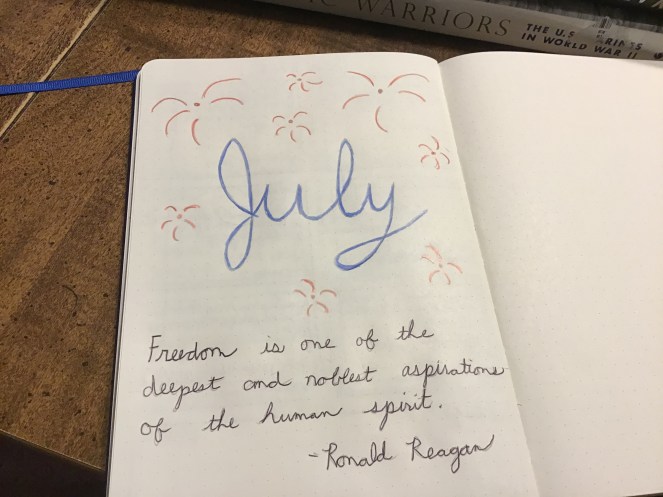 WARRIORS
THE U.S
IN WORLD WAR II
July
Freedom is one of the
deepest and noblest aspirations
of the human spirit.
-Ronald Reagan